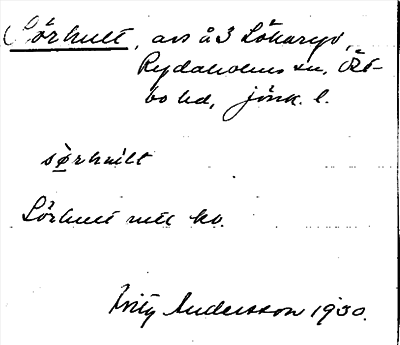 Sörhult, avs å 3 Lökaryd,
Rydaholms sn, Öst-
bo hd, jönk. l.
sö̀rhúlt
Sörhult mtl kv.
Fritz Andersson 1930.